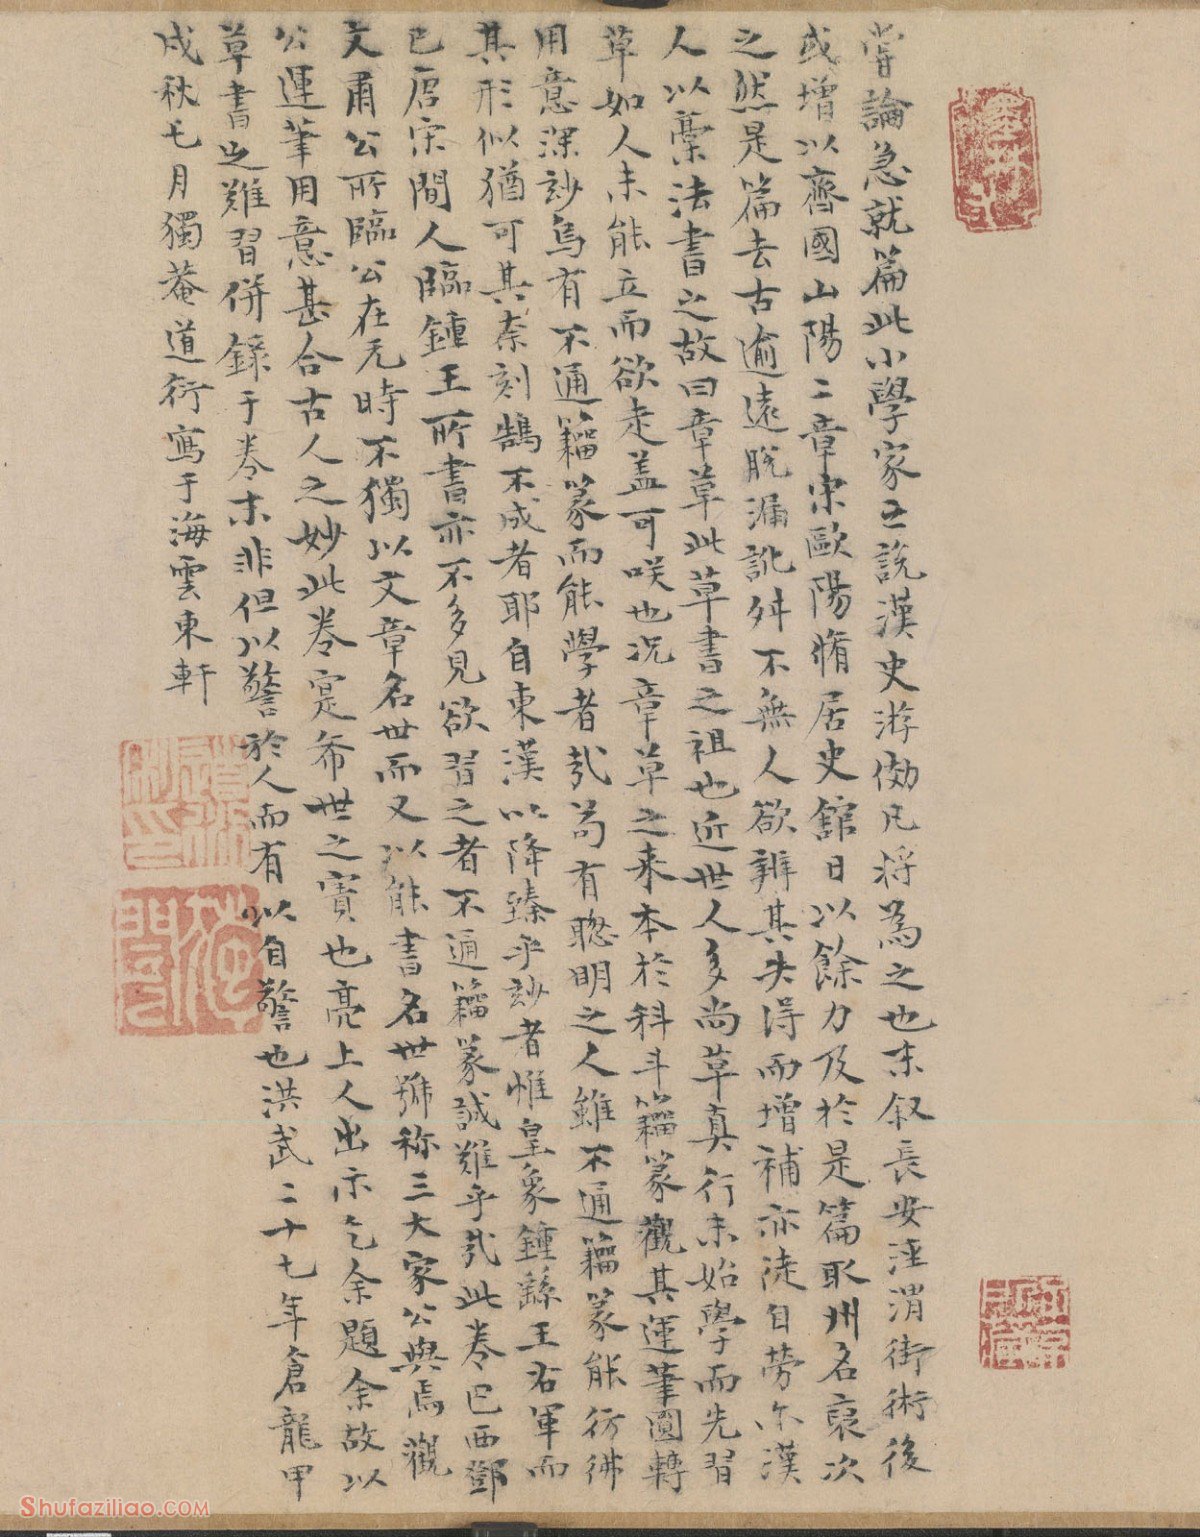 嘗論急就篇此小學家王說漢史游倣凡將為之也末叙長安涇渭街術後
或增以齊國山陽二章宋歐陽脩居史館日以餘力及於是篇取州名裒次
之然是篇去古逾遠脫漏訛舛不無人欲辨其失得而增補亦徒自勞尔漢
人以稾法書之故曰章草此草書之祖也近世人多尚草真行未始學而先習
草如人未能立而欲走盖可咲也況章草之来本於科斗籀篆觀其運筆圓轉
用意深玅烏有不通籀篆而能學者㢤茍有聦明之人雖不通籀篆能彷彿
其形似猶可其柰刻鵠不成者耶自東漢以降臻乎玅者惟皇象鍾繇王右軍而
已唐宋間人臨鍾王所書亦不多見欲習之者不通籀篆誠難乎㢤此卷巴西鄧
文肅公所臨公在元時不獨以文章名世而又以能書名世號称三大家公與焉觀
公運筆用意甚合古人之妙此卷寔希世之寶也亮上人出示乞余題余故以
草書之難習併錄于卷末非但以警於人而有以自警也洪武二十七年倉龍甲
戍秋七月獨菴道衍寫于海雲東軒
Shufaziliao.com